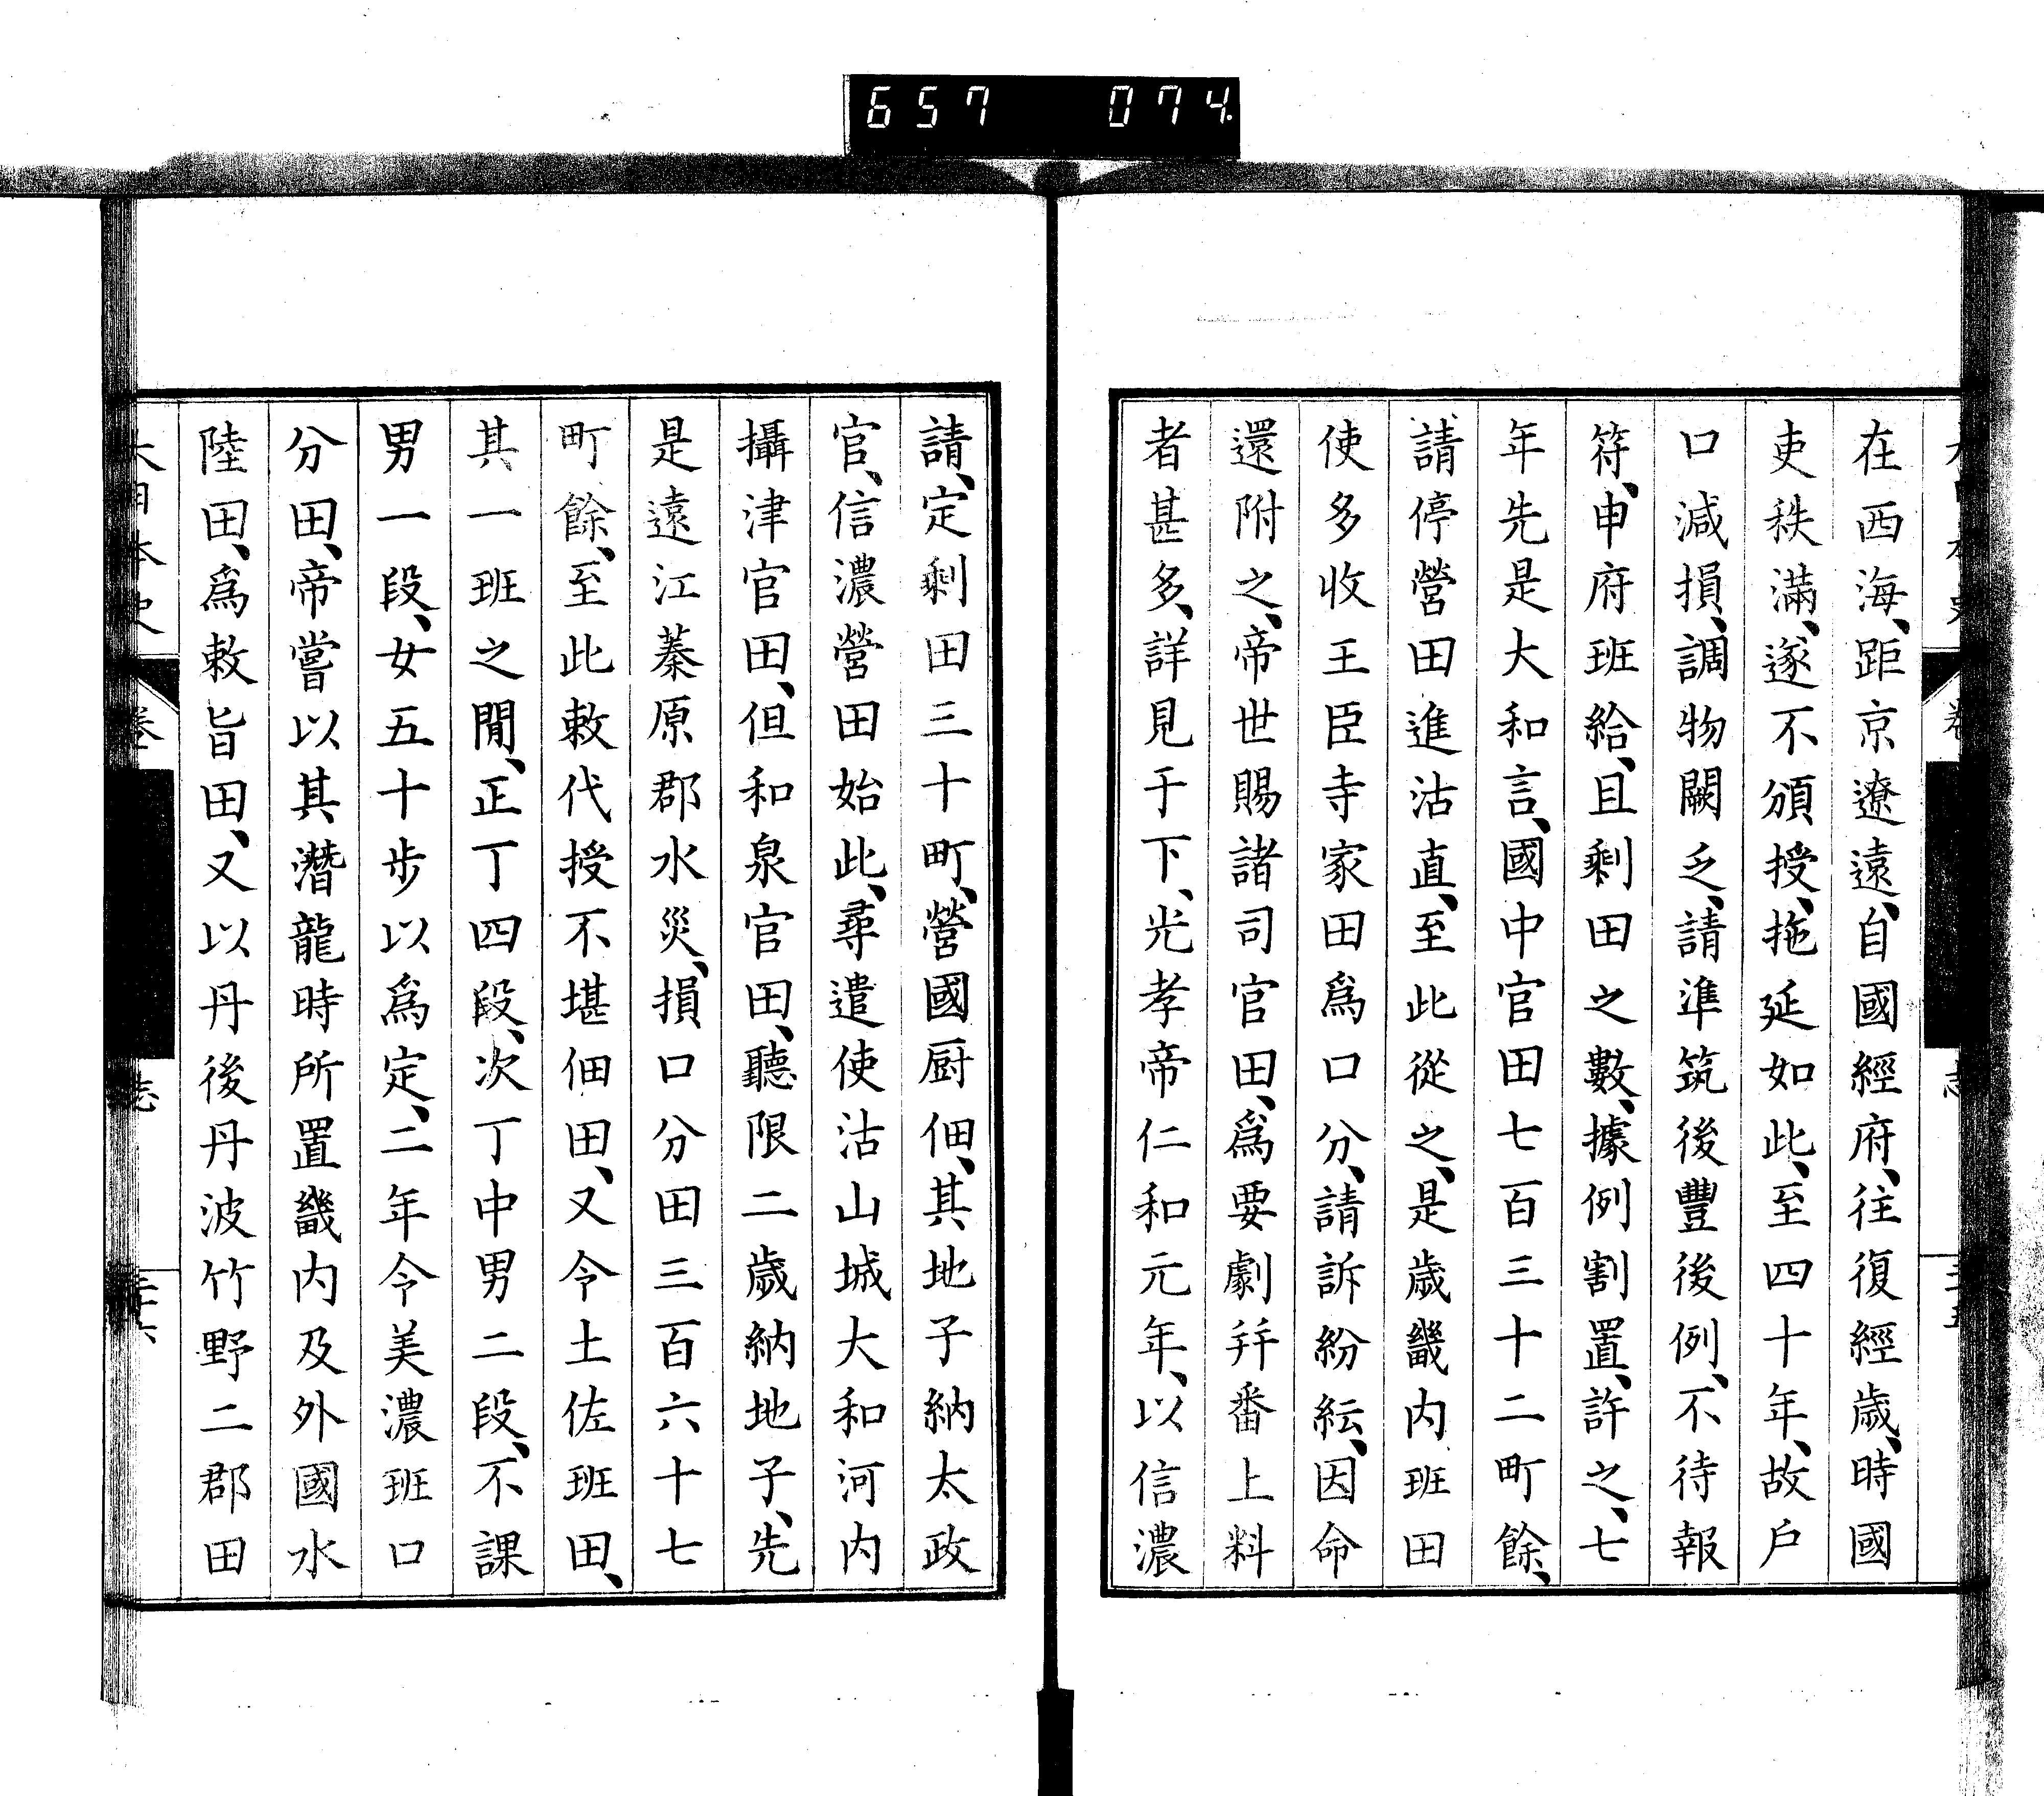 657 074.
在西海、距京遼遠、自國經府、往復經歳、時國
吏秩滿、遂不頒授、拖延如此、至四十年、故戶
口減損、調物闕乏、請準筑後豐後例、不待報
符、申府班給、且剩田之數、據例割置、許之、七
年先是大和言、國中官田七百三十二町餘、
請停營田進沽直、至此從之、是歳畿内班田
使多收王臣寺家田爲口分、請訴紛紜、因命
還附之、帝世賜諸司官田、爲要劇幷番上料
者甚多、詳見于下、光孝帝仁和元年、以信濃
請、定剩田三十町、營國厨佃、其地子納太政
官、信濃營田始此、尋遣使沽山城大和河内
攝津官田、但和泉官田、聽限二歳納地子、先
是遠江蓁原郡水災、損口分田三百六十七
町餘、至此敕代授不堪佃田、又令土佐班田、
其一班之閒、正丁四段、次丁中男二段、不課
男一段、女五十步以爲定、二年令美濃班口
分田、帝嘗以其潛龍時所置畿内及外國水
陸田、爲敕旨田、又以丹後丹波竹野二郡田
大日本史 卷 志 三十六